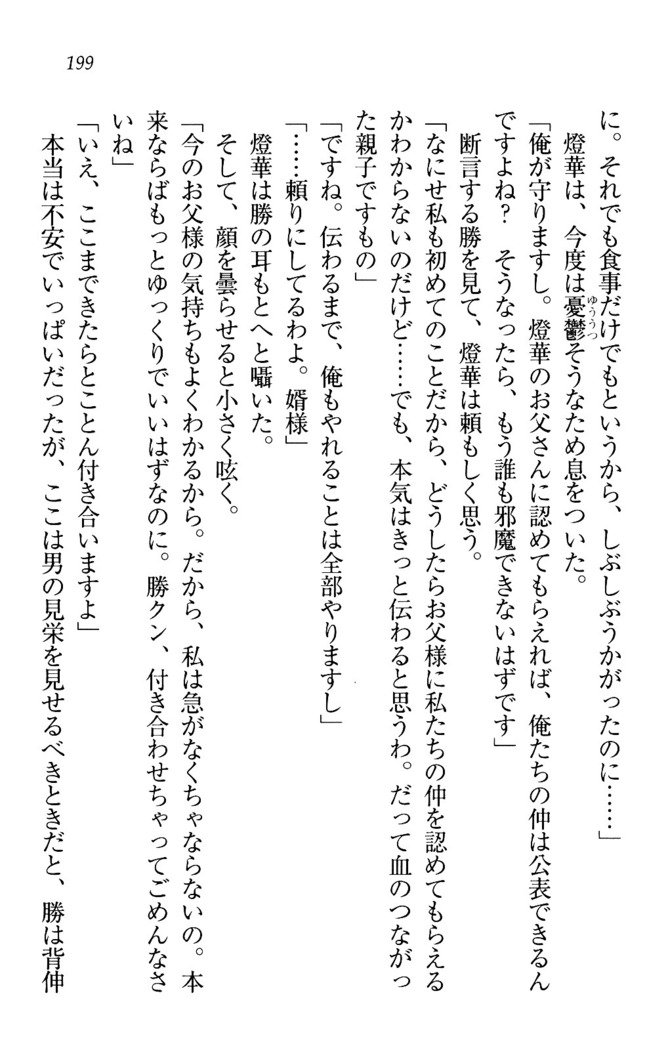 199
に。それでも食事だけでもというから、しぶしぶうかがったのに……」
燈華は、今度は憂鬱そうなため息をついた。
ゆううつ
「俺が守りますし。燈華のお父さんに認めてもらえれば、俺たちの仲は公表できるん
ですよね？　そうなったら、もう誰も邪魔できないはずです」
断言する勝を見て、燈華は頼もしく思う。
「なにせ私も初めてのことだから、どうしたらお父様に私たちの仲を認めてもらえる
かわからないのだけど……でも、本気はきっと伝わると思うわ。だって血のつながっ
た親子ですもの」
「ですね。伝わるまで、俺もやれることは全部やりますし」
「……頼りにしてるわよ。婿様」
燈華は勝の耳もとへと囁いた。
そして、顔を曇らせると小さく呟く。
「今のお父様の気持ちもよくわかるから。だから、私は急がなくちゃならないの。本
来ならばもっとゆっくりでいいはずなのに。勝クン、付き合わせちゃってごめんなさ
いね」
「いえ、ここまできたらとことん付き合いますよ」
本当は不安でいっぱいだったが、ここは男の見栄を見せるべきときだと、勝は背伸